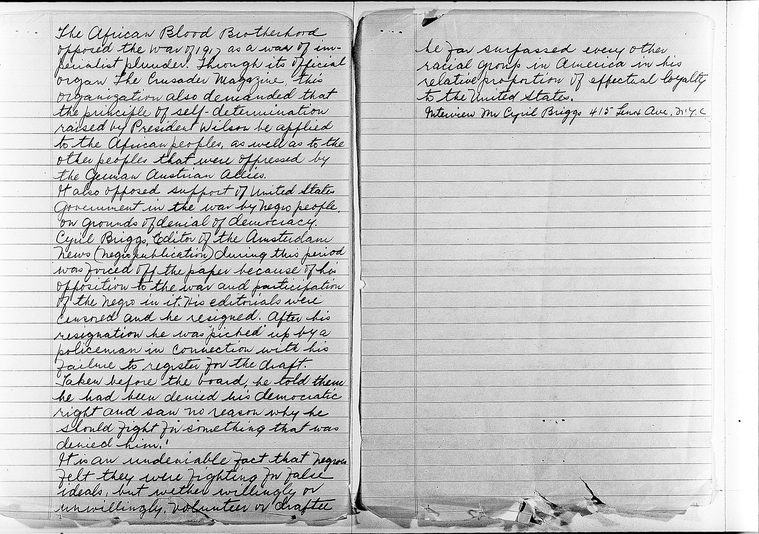 The African Blood Brotherhood
opposed the war of 1917 as a war of im-
perialist plunder. Through its official
organ The Crusader Magazine, this
organization also demanded that
the principle of self-determination
raised by President Wilson be applied
to the African peoples, as well as to the
other peoples that were oppressed by
the German Austrian Allies.
It also opposed support of United States
Government in the war by Negro people,
on grounds of denial of democracy.
Cyril Briggs, Editor of the Amsterdam
News (Negro publication) during this period
was forced off the paper because of his
opposition to the war and participation
of the Negro in it. His editorials were
censored and he resigned. After his
resignation he was "picked" up by a
policeman in connection with his
failure to register for the draft.
Taken before the board, he told them
he had been denied his democratic
right and saw no reason why he
should fight for something that was
denied him.!
It is an undeniable fact that Negroes
felt they were fighting for false
ideals, but wether willingly or
unwillingly, volunteer or draftee
he far surpassed every other
racial group in America in his
relative proportion of effectual loyalty
to the United States.
Interview Mr Cyril Briggs 415 Lenox Ave. N.Y.C